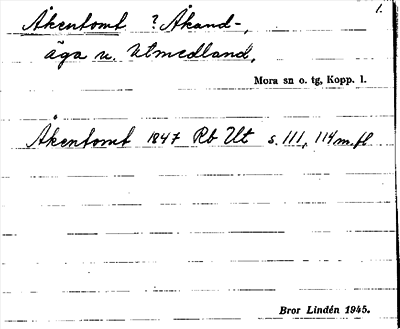 1.
Åkentomt ? Åkand-,
äga u. Utmedland,
Mora sn o. tg, Kopp. l.
Åkentomt 1847 Rb Ut s. 111, 114 m.fl
Bror Lindén 1945.